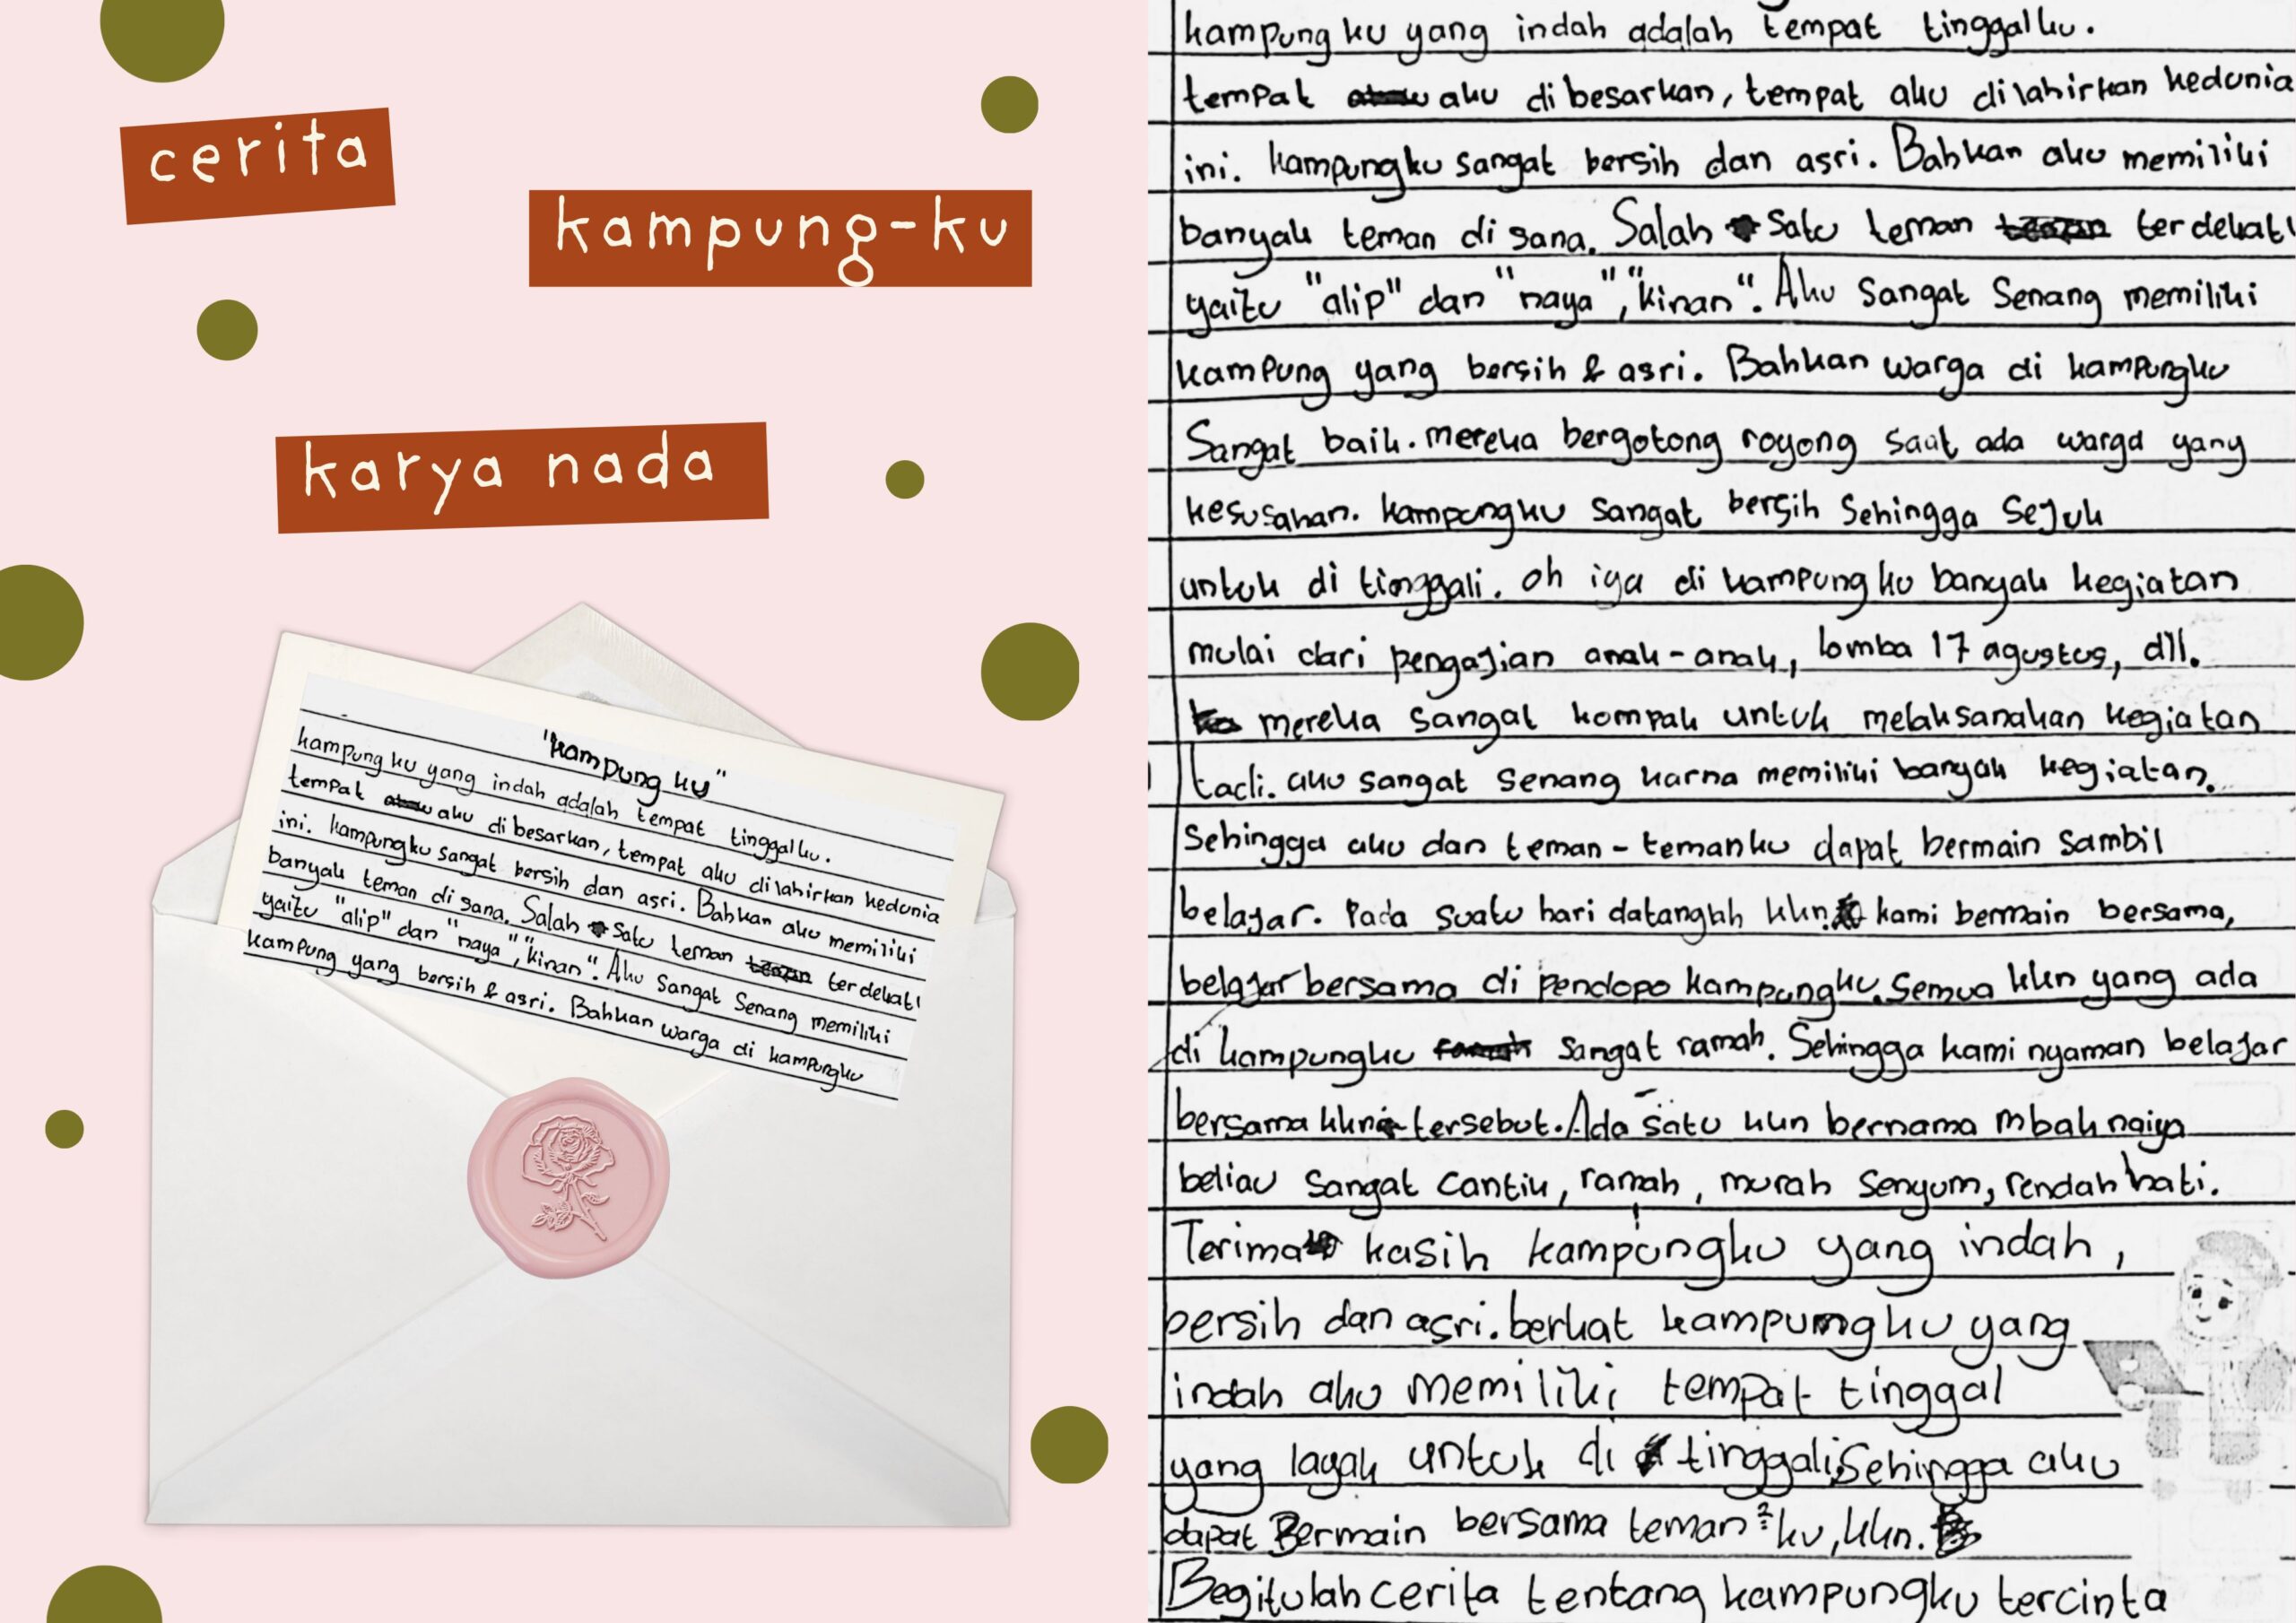 cerita
kampung-ku
karya nada
"kampung ku"
kampung ku yang indah adalah tempat tinggalku.
tempat aku di besarkan, tempat aku dilahirkan kedunia
ini. kampungku sangat bersih dan asri. Bahkan aku memiliki
banyak teman di sana. Salah Satu teman terdekat
yaitu "alip" dan "naya", "kinan". Aku Sangat Senang memiliki
kampung yang bersih & asri. Bahkan warga di kampungku
kampung ku yang indah adalah tempat tinggalku.
tempat aku di besarkan, tempat aku dilahirkan kedunia
ini. kampungku sangat bersih dan asri. Bahkan aku memiliki
banyak teman di sana. Salah Satu teman terdekat
yaitu "alip" dan "naya", "kinan". Aku Sangat Senang memiliki
kampung yang bersih & asri. Bahkan warga di kampungku
Sangat baik. mereka bergotong royong saat ada warga yang
kesusahan. kampungku sangat bersih Sehingga Sejuk
untuk di tinggali. oh iya di kampung ku banyak kegiatan
mulai dari pengajian anak-anak, lomba 17 agustus, dll.
mereka sangat kompak untuk melaksanakan kegiatan
tadi. aku sangat senang karna memiliki banyak kegiatan.
Sehingga aku dan teman-temanku dapat bermain sambil
belajar. Pada suatu hari datanglah kkn. kami bermain bersama,
belajar bersama di pendopo kampungku. Semua kkn yang ada
di kampungku sangat ramah. Sehingga kami nyaman belajar
bersama kkn tersebut. Ada satu kkn bernama mbak
beliau sangat cantik, ramah, murah senyum, rendah hati.
Terima kasih kampungku yang indah,
bersih dan asri. berkat kampungku yang
indah aku memiliki tempat tinggal
yang layak untuk di tinggali, Sehingga aku
dapat Bermain bersama teman²ku, kkn.
Begitulah cerita tentang kampungku tercinta